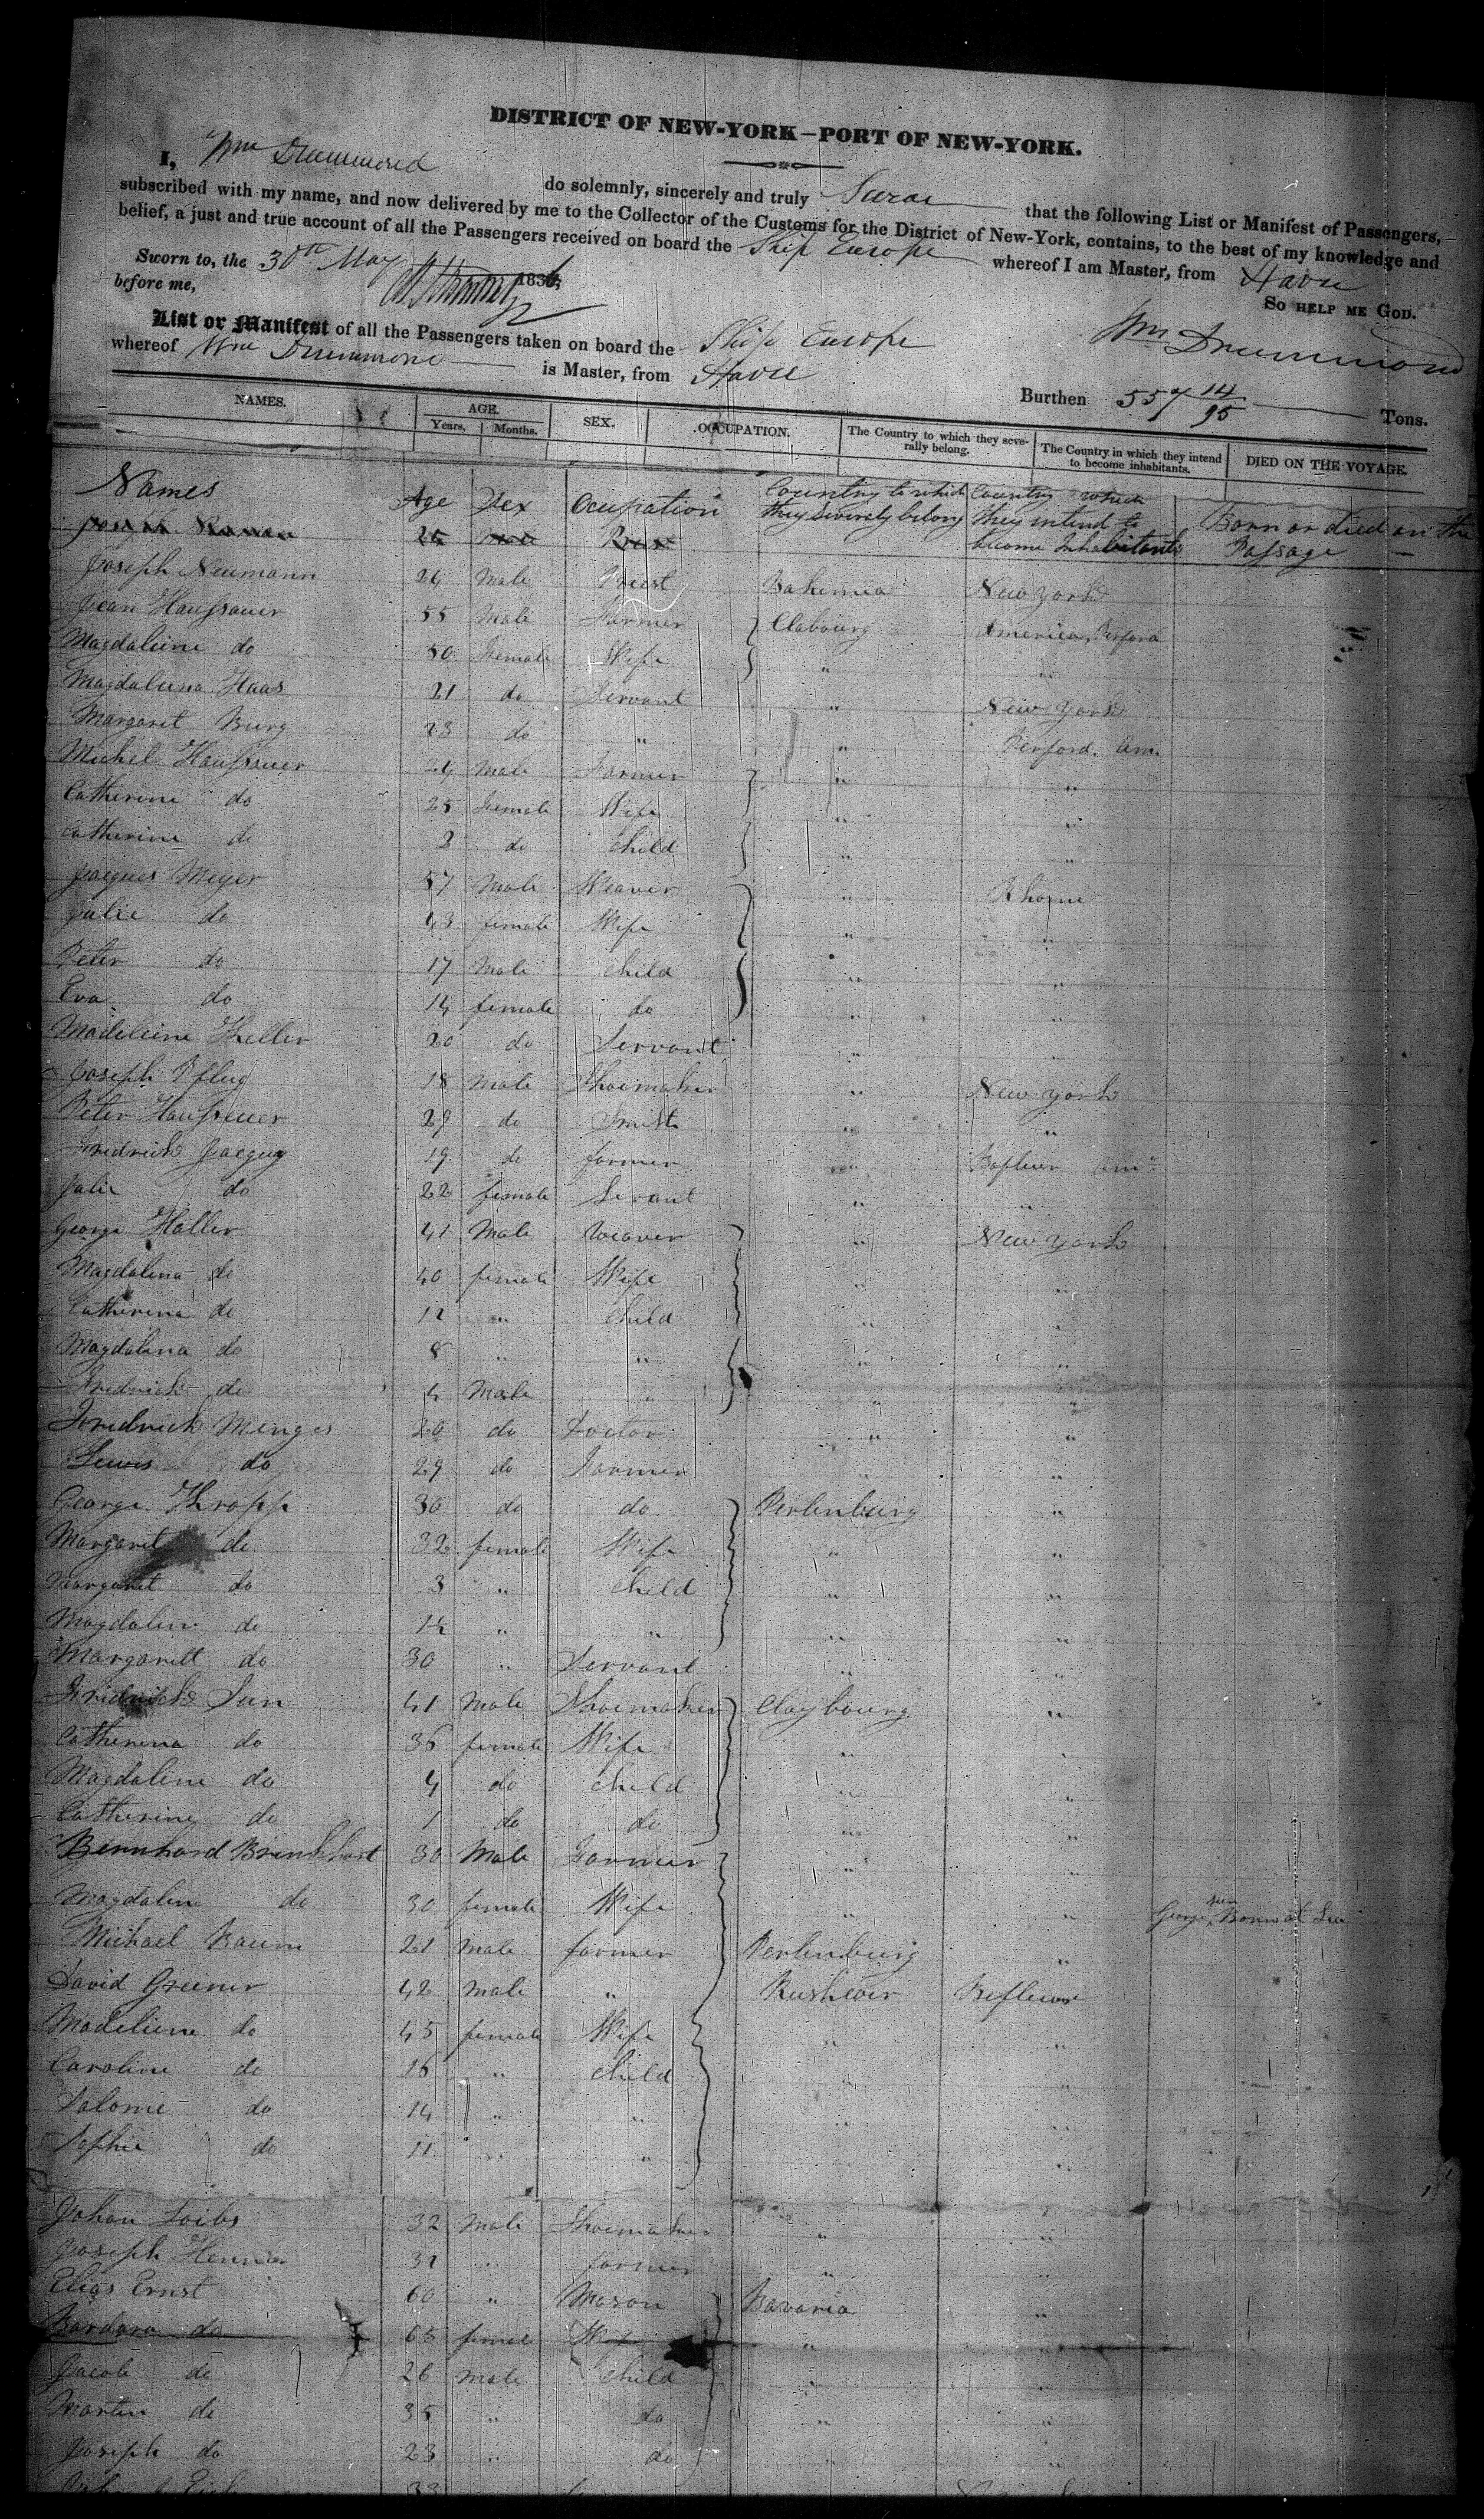 DISTRICT OF NEW-YORK—PORT OF NEW-YORK.
I, Wm Drummond do solemnly, sincerely and truly Swear that the following List or Manifest of Passengers,
subscribed with my name, and now delivered by me to the Collector of the Customs for the District of New-York, contains, to the best of my knowledge and
belief, a just and true account of all the Passengers received on board the Ship Europe whereof I am Master, from Havre
Sworn to, the 30th May 1836, So HELP ME GOD.
before me,
Wm Drummond
List or Manifest of all the Passengers taken on board the Ship Europe
whereof Wm Drummond is Master, from Havre
Burthen 557 14/95 Tons.
NAMES. AGE. SEX. OCCUPATION. The Country to which they severally belong. The Country in which they intend to become inhabitants. DIED ON THE VOYAGE.
Years. Months.
Names Age Sex Ocupation Country to which they severely belong Country which they intend to become Inhabitants Born or died on the Passage
Joseph Neumann 24 Male Priest Bohemia New York
Jean Haussauer 55 Male Farmer Clabourg America,
Magdaleine do 50 Female Wife "
Magdalena Haas 21 do Servant " New York
Margaret Burg 23 do " " Am.
Michel Haussauer 24 Male Farmer " "
Catherine do 25 female Wife " "
Catherine do 2 do Child " "
Jacques Meyer 57 Male Weaver "
Julie do 43 female Wife " "
Peter do 17 Male child " "
Eva do 14 female do " "
Madeleine Heller 20 do Servant " "
Joseph Pflug 18 male Shoemaker " New York
Peter Haussauer 29 do Smith " "
Fredrick Jacquy 19 do farmer "
Julie do 22 female Servant " "
George Haller 41 Male Weaver " New York
Magdalena do 40 female Wife " "
Catherina do 12 " Child " "
Magdalena do 8 " " " "
Fredrick do 4 Male " " "
Fredrick Menges 20 do Doctor " "
Lewis do 29 do Farmer " "
George Kropp 30 do do Perlenburg "
Margaret do 32 female Wife " "
Margaret do 3 " child " "
Magdalene do 1½ " " " "
Margarett do 30 " Servant " "
Fridrick Jun 41 Male Shoemaker Claybourg "
Catherina do 36 female Wife " "
Magdaline do 4 do child " "
Catherine do 1 do do " "
Bernhard Brinkhart 30 Male Farmer " "
Magdalen do 30 female Wife " " George Born at Sea
Michael Baum 21 Male farmer Perlenburg "
David Greener 42 male "
Madeliene do 45 female Wife " "
Caroline do 16 " child " "
Salome do 14 " " " "
Sophie do 11 " " "
Johan Loibs 32 Male Shoemaker " "
Joseph 31 " farmer " "
Elias Ernst 60 " Mason Bavaria "
Bardara do 65 femel " "
Jacob do 26 male child " "
Martin do 35 " do " "
Joseph do 23 " do
33